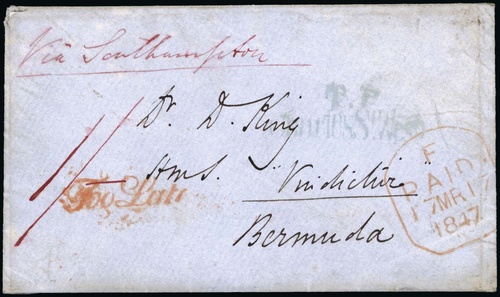 Via Southampton
T.P
1/-
Dr. D. King
HMS. "Vindictive"
Bermuda
Too Late
F
PAID
17MR17
1847